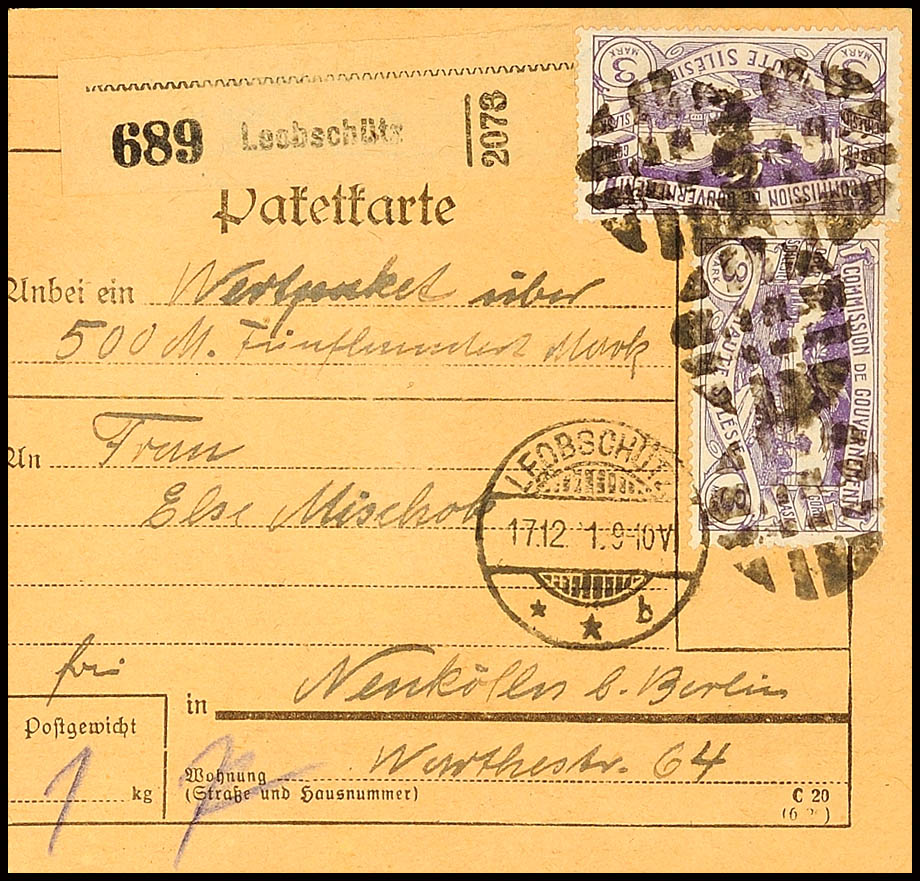 689 Leobschütz 2078
Paketkarte
Anbei ein Wertpaket über
500 M. Fünfhundert Mark
An Frau
Else Mischok
LEOBSCHÜTZ
17.12. 1.9-10V
* * b
frei
in Neukölln b. Berlin
Postgewicht
1 kg
Wohnung
(Straße und Hausnummer)
Warthestr. 64
C 20
3 MARK 3 MARK
HAUTE SILESIE
COMMISSION DE GOUVERNEMENT
3 MARK 3 MARK
COMMISSION DE GOUVERNEMENT
HAUTE SILESIE